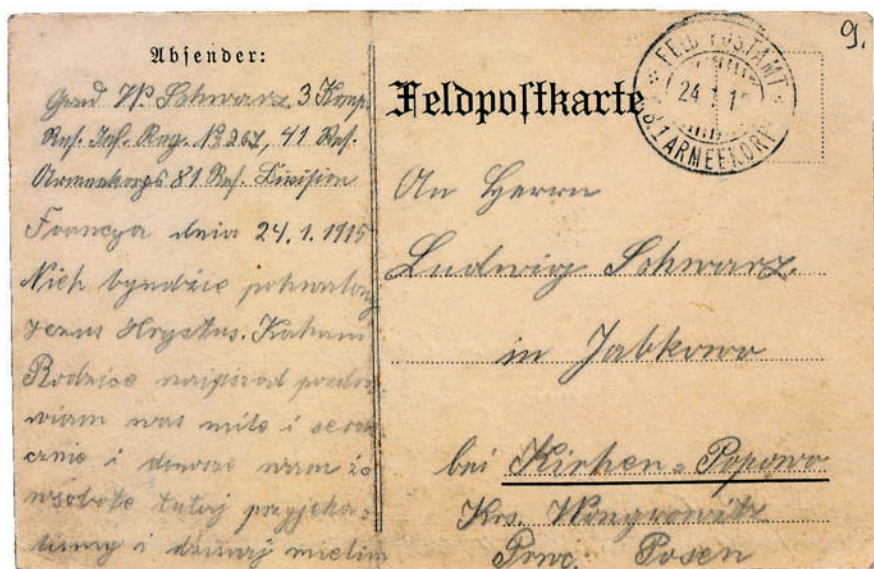 9.
Absender:
Gred W. Schwarz 3 Komp.
Res. Inf. Reg. № 267, 41 Res.
Armeekorps 81 Res. Division
Francya dnia 24.1.1915
Nieh byndzie pohwalony
Jezus Hrystus. Kohani
Rodzice naipszod pozdro
wiam was mile i serde
cznie i donosze wam że
wsobote tutaj przyjeha-
limy i dzisiaj mielim
Feldpostkarte
FELD POSTAMT
24 1 1
ARMEEKORP
An Herrn
Ludwig Schwarz
in Jabkowo
bei Kirchen-Popowo
Krs. Wongrowitz
Prov. Posen